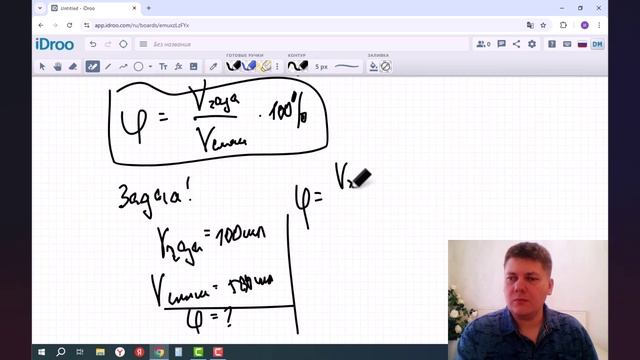 Untitled - iDroo
app.idroo.com/ru/boards/emuxzLzFYx
iDroo
Без названия
0
DM
ГОТОВЫЕ РУЧКИ КОНТУР ЗАЛИВКА
5 px
φ = Vгаза / Vсмеси · 100%
Задача!
Vгаза = 100мл
φ = V
φ = ?